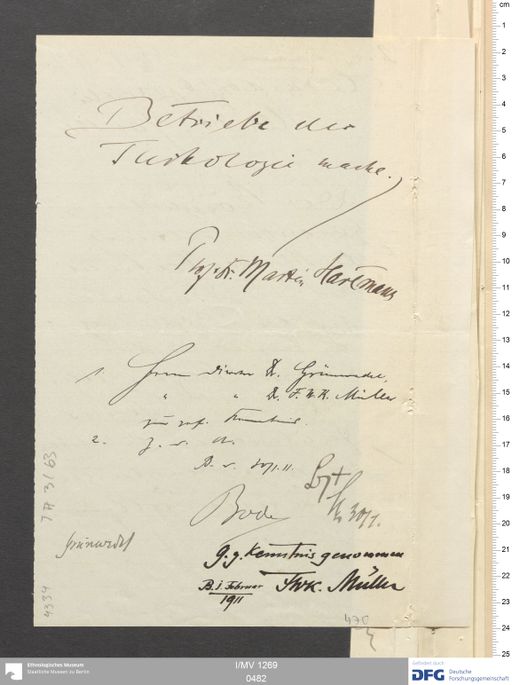 Betriebe der
Turkologie mache.
Prof. Dr. Martin Hartmann
1. Herrn Direktor Dr. Grünwedel,
" " Dr. F. W. K. Müller
zur gef. Kenntnis.
2. z. d. A.
B. d. 30/1.11.
Bode
30/1.
Grünwedel
g. g. Kenntnis genommen
B. 1. Februar FWK. Müller
1911
I A 31 63
4334
470
I/MV 1269
0482
Ethnologisches Museum
Staatliche Museen zu Berlin
gefördert durch
DFG Deutsche
Forschungsgemeinschaft
cm
1
2
3
4
5
6
7
8
9
10
11
12
13
14
15
16
17
18
19
20
21
22
23
24
25